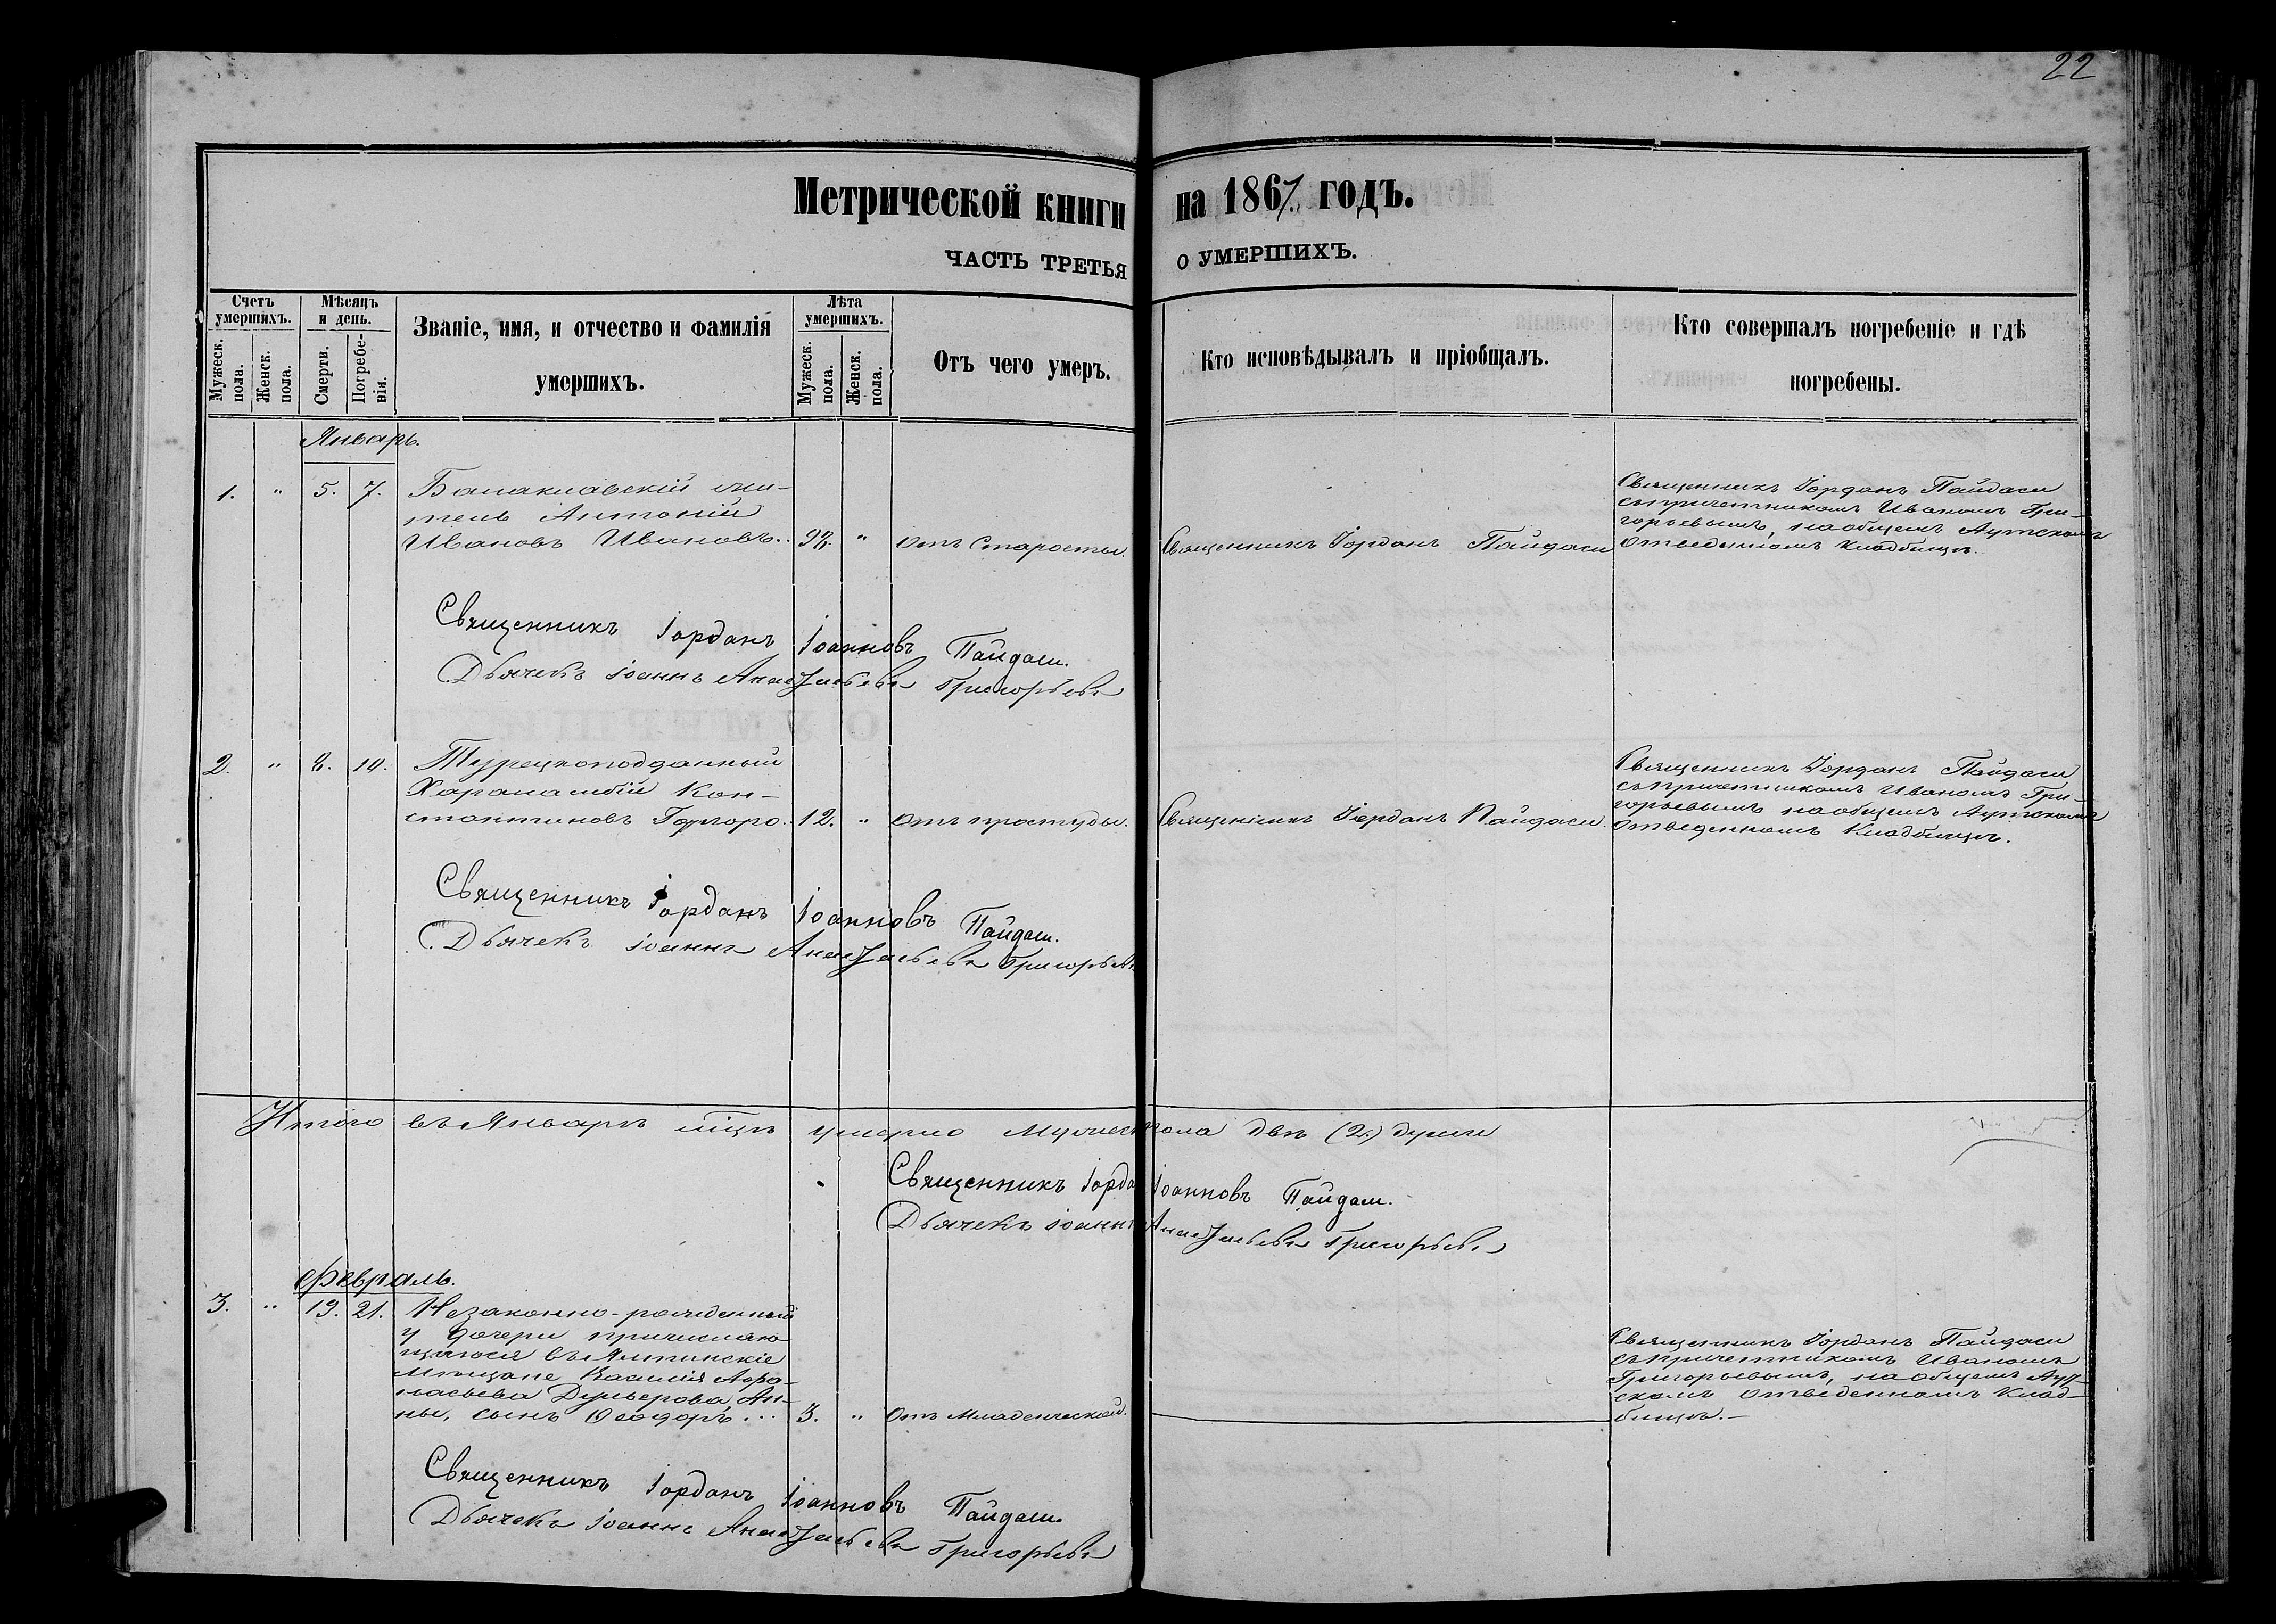 22
Метрической книги на 1867. годъ.
ЧАСТЬ ТРЕТЬЯ О УМЕРШИХЪ.
Счетъ умершихъ.
Мужеск. пола.
Женск. пола.
Мѣсяцъ и день.
Смерти.
Погребе-
нія.
Званіе, имя, и отчество и фамилія
умершихъ.
Лѣта умершихъ.
Мужеск. пола.
Женск. пола.
Отъ чего умеръ.
Кто исповѣдывалъ и пріобщалъ.
Кто совершалъ погребеніе и гдѣ
погребены.
Январь.
1. " 5. 7.
Балаклавскій жи-
тель Антоній
Ивановъ Ивановъ..
98. " отъ Старости.
Священникъ Іорданъ Пайдаси
Священникъ Іорданъ Пайдаси
съ причетникомъ Иваномъ Гри-
горьевымъ, на общемъ Аутскомъ
отведенномъ кладбищѣ.
Священникъ Іорданъ Іоанновъ Пайдаси.
Дьячекъ Іоаннъ Григорьевъ
2. " 8. 10.
Турецкоподданный
Харалампій Кон-
стантиновъ
12. " отъ простуды.
Священникъ Іорданъ Пайдаси.
Священникъ Іорданъ Пайдаси
съ причетникомъ Иваномъ Гри-
горьевымъ на общемъ Аутскомъ
отведенномъ Кладбищѣ.
Священникъ Іорданъ Іоанновъ Пайдаси.
Дьячекъ Іоаннъ Григорьевъ
Итого въ Январѣ мцѣ умерло Мужескпола двѣ (2.) души
Священникъ Іорда Іоанновъ Пайдаси.
Дьячекъ Іоаннъ Григорьевъ
Февраль.
3. " 19. 21.
Незаконно-рожденный
у дочери причисляю-
щагося въ Ялтинскіе
Мѣщане Василія Афа-
насьева Ан-
ны, сынъ Ѳеодоръ...
3. " отъ Младенческой.
Священникъ Іорданъ Пайдаси
съ причетникомъ Иваномъ
Григорьевымъ, на общемъ Аут-
скомъ отведенномъ Клад-
бищѣ.—
Священникъ Іорданъ Іоанновъ Пайдаси.
Дьячекъ Іоаннъ Григорьевъ